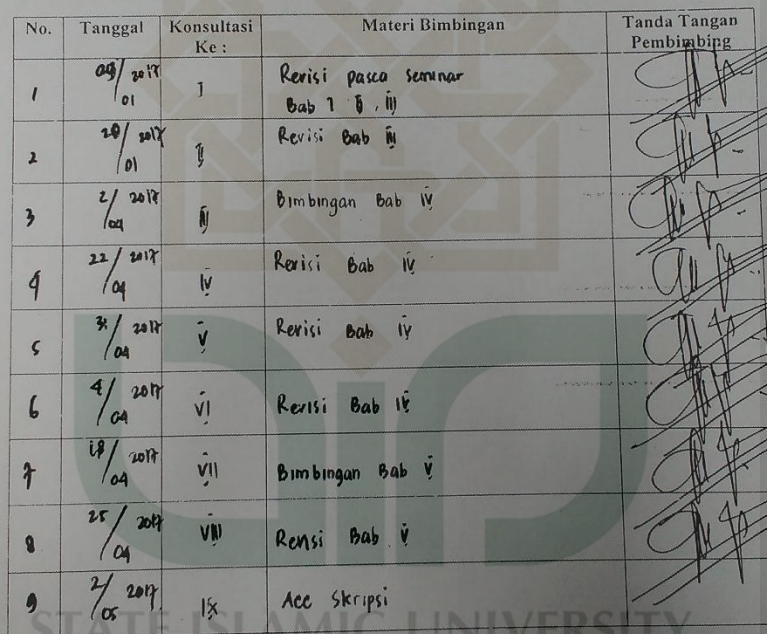 No. Tanggal Konsultasi Ke : Materi Bimbingan Tanda Tangan Pembimbing
1 09/01 2017 I Revisi pasca seminar
Bab I II, III
2 20/01 2017 II Revisi Bab III
3 2/04 2017 III Bimbingan Bab IV
4 22/04 2017 IV Revisi Bab IV
5 2017 V Revisi Bab IV
6 4/04 2017 VI Revisi Bab IV
7 18/04 2017 VII Bimbingan Bab V
8 25/04 2017 VIII Revisi Bab V
9 2/05 2017 IX Acc Skripsi
STATE ISLAMIC UNIVERSITY